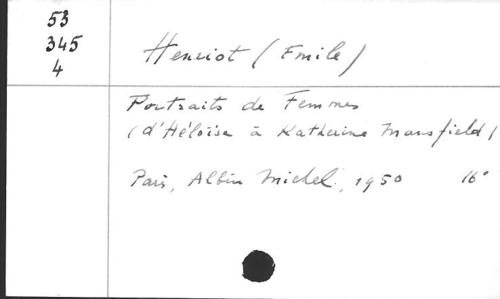 53
345
4
Henriot (Emile)
Portraits de Femmes
(d'Héloïse à Katherine Mansfield)
Paris, Albin Michel, 1950 16°